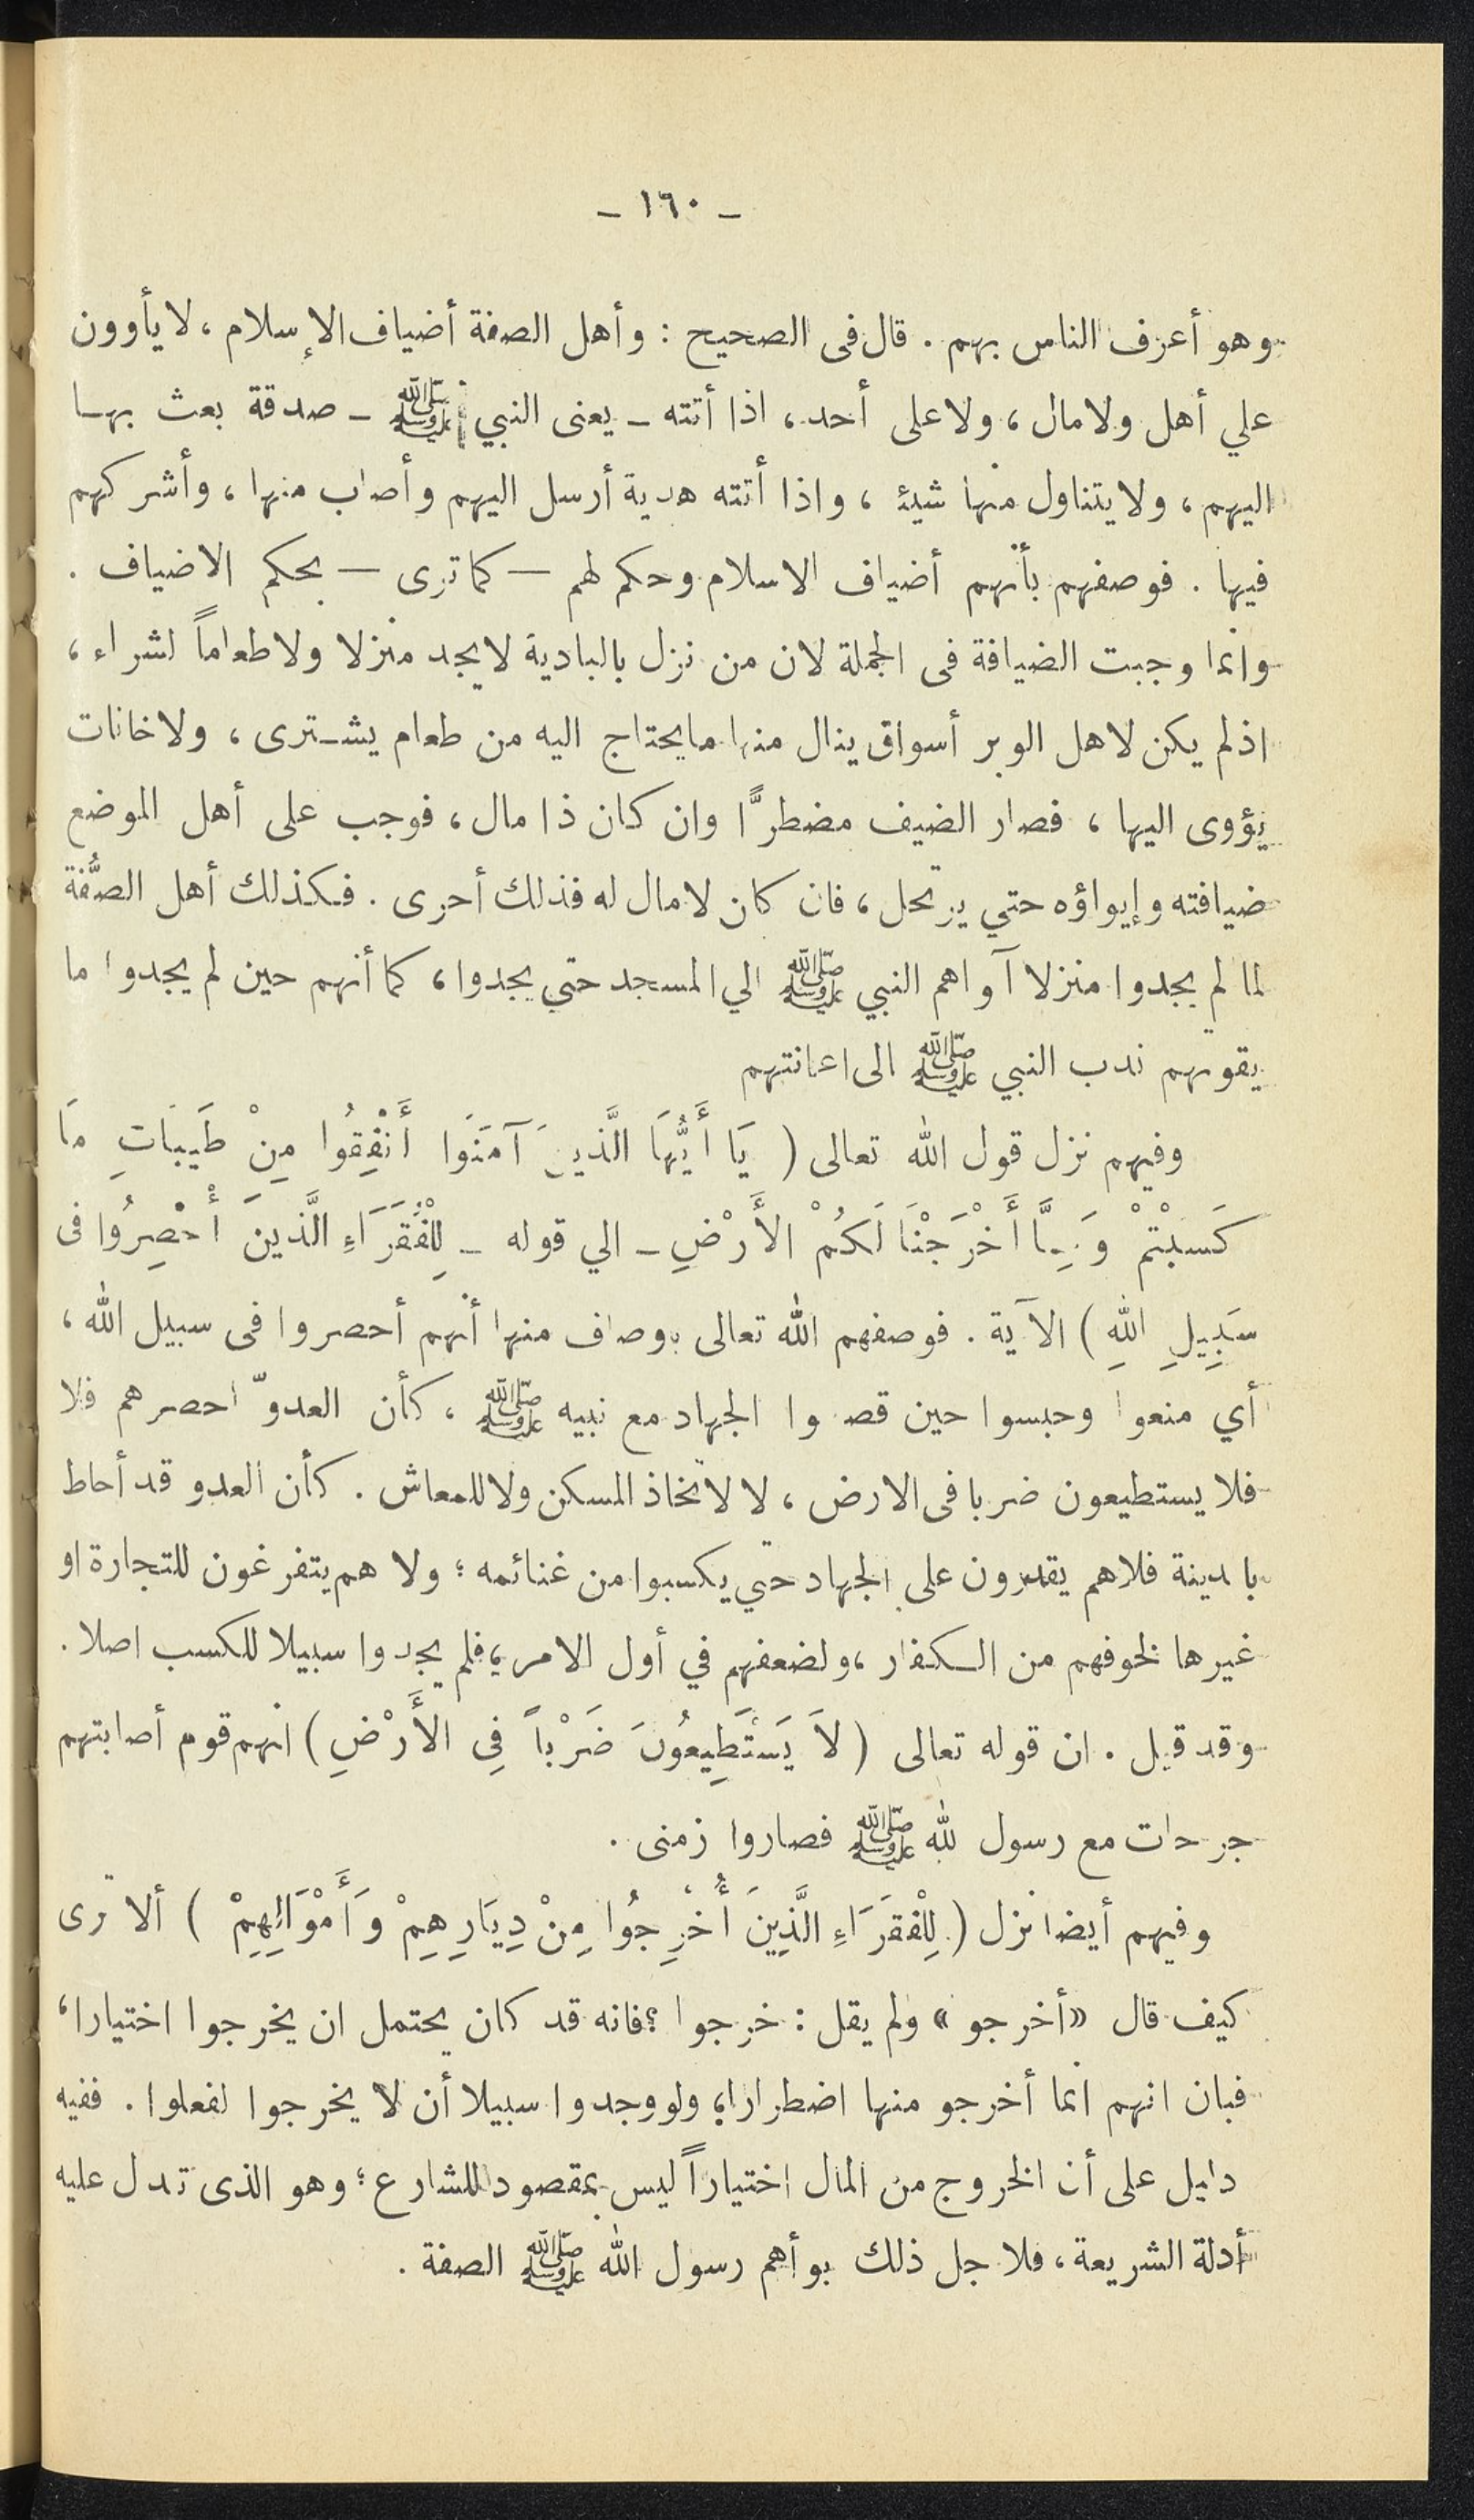 - ١٦٠ -
وهو أعرف الناس بهم . قال فى الصحيح : وأهل الصفة أضياف الإسلام ، لا يأوون
علي أهل ولا مال ، ولا على أحد ، اذا أتته ـ يعنى النبي ﷺ ـ صدقة بعث بها
اليهم ، ولا يتناول منها شيئا ، واذا أتته هدية أرسل اليهم وأصاب منها ، وأشركهم
فيها . فوصفهم بأنهم أضياف الاسلام وحكم لهم — كما ترى — بحكم الاضياف .
وانما وجبت الضيافة فى الجملة لان من نزل بالبادية لا يجد منزلا ولا طعاماً لشراء ،
اذ لم يكن لاهل الوبر أسواق ينال منها ما يحتاج اليه من طعام يشترى ، ولا خانات
يؤوى اليها ، فصار الضيف مضطرًّا وان كان ذا مال ، فوجب على أهل الموضع
ضيافته وإيواؤه حتي يرتحل ، فان كان لا مال له فذلك أحرى . فكذلك أهل الصُّفة
لما لم يجدوا منزلا آواهم النبي ﷺ الي المسجد حتي يجدوا ، كما أنهم حين لم يجدوا ما
يقوتهم ندب النبي ﷺ الى اعانتهم
وفيهم نزل قول الله تعالى ( يَا أَيُّهَا الَّذينَ آمَنَوا أَنْفِقُوا مِنْ طَيبَاتِ مَا
كَسَبْتمْ وَمِمَّا أَخْرَجْنَا لَكُمْ الأَرْضِ ـ الي قوله ـ لِلْفُقَرَاءِ الَّذينَ أُحْصِرُوا فى
سَبِيلِ اللهِ ) الآية . فوصفهم الله تعالى بوصاف منها أنهم أحصروا فى سبيل الله ،
أي منعوا وحبسوا حين قصدوا الجهاد مع نبيه ﷺ ، كأن العدوّ احصرهم فلا
فلا يستطيعون ضربا فى الارض ، لا لاتخاذ المسكن ولا للمعاش . كأن العدو قد أحاط
بالمدينة فلاهم يقدرون على الجهاد حتي يكسبوا من غنائمه ؛ ولا هم يتفرغون للتجارة او
غيرها لخوفهم من الكفار ، ولضعفهم في أول الامر ، فلم يجدوا سبيلا للكسب اصلا .
وقد قيل . ان قوله تعالى ( لاَ يَسَتَطِيعُونَ ضَرْباً فِى الأَرْضِ ) انهم قوم أصابتهم
جرحات مع رسول لله ﷺ فصاروا زمنى .
وفيهم أيضا نزل ( لِلْفقَرَاءِ الَّذِينَ أُخْرِجُوا مِنْ دِيَارِهِمْ وَأَمْوَالِهِمْ ) ألا ترى
كيف قال « أخرجو » ولم يقل : خرجوا ؟ فانه قد كان يحتمل ان يخرجوا اختيارا ،
فبان انهم انما أخرجو منها اضطرارا ، ولو وجدوا سبيلا أن لا يخرجوا لفعلوا . ففيه
دليل على أن الخروج من المال اختياراً ليس بمقصود للشارع ؛ وهو الذى تدل عليه
أدلة الشريعة ، فلاجل ذلك بوأهم رسول الله ﷺ الصفة .